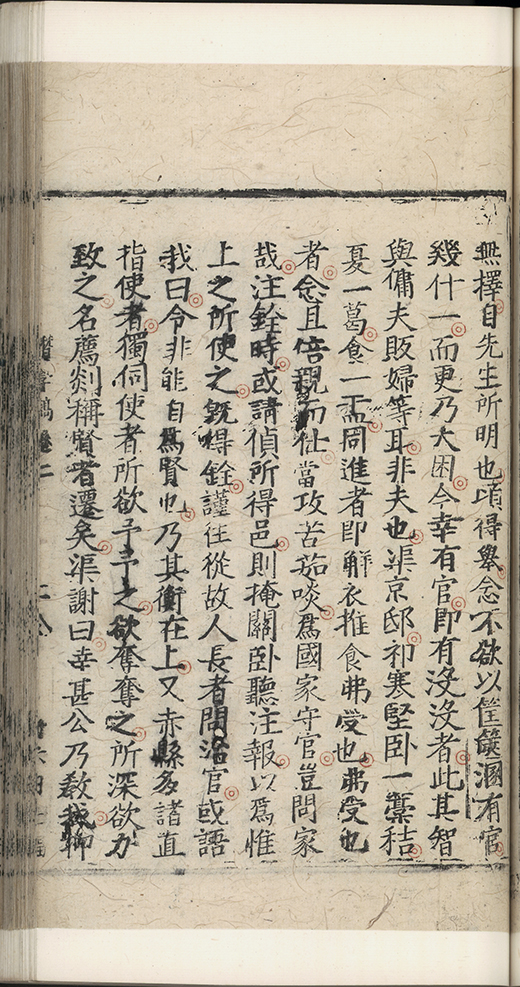 無擇自先生所明也頃得舉念不欲以筐篋溷有官
幾什一而更乃大困今幸有官即有沒沒者此其智
與傭夫販婦等耳非夫也渠京邸祁寒堅卧一藁秸
夏一葛食一盂同進者即解衣推食弗受也弗受也
者念且倍親而仕當攻苦茹啖爲國家守官豈問家
哉注銓時或請偵所得邑則掩關卧聽注報以爲惟
上之所使之既得銓謹往從故人長者問治官或語
我曰令非能自爲賢也乃其衡在上又赤縣多諸直
指使者獨伺使者所欲予予之欲奪奪之所深欲力
致之名薦剡稱賢者遷矣渠謝曰幸甚公乃教我聊
卷二